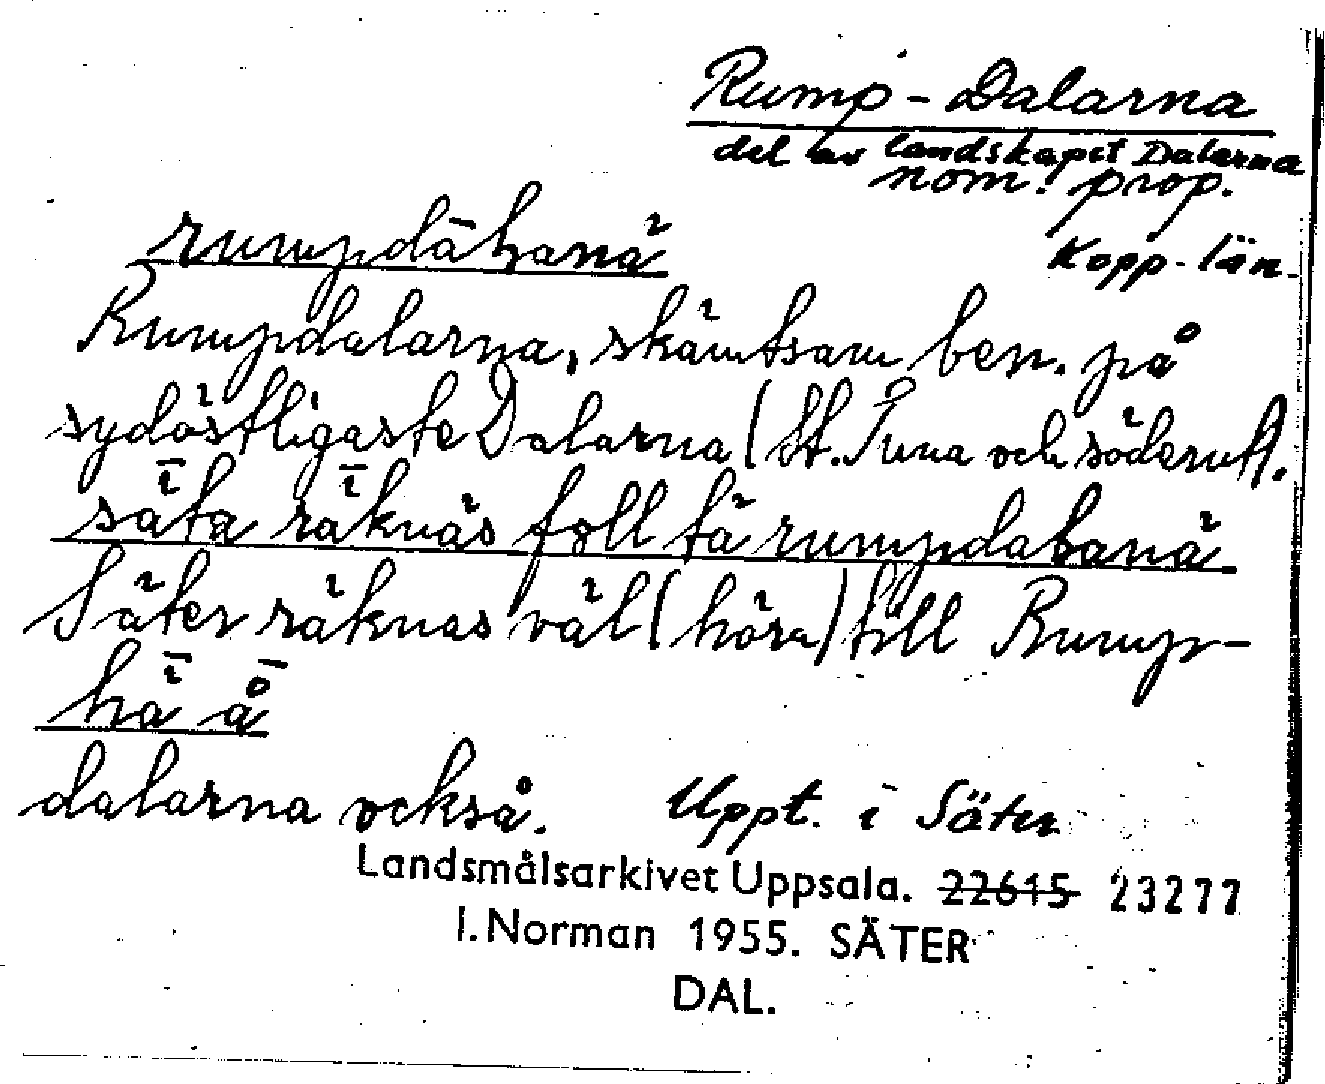 Rump-Dalarna
del av landskapet Dalarna
nom. prop.
Kopp-län-
rumpdāhanä
Rumpdalarna, skämtsam ben. på
sydöstligaste Dalarna (St. Tuna och söderut).
säta räknäs foll tä rumpdahanä
Säter räknas väl (höra) till Rump-
hä å
dalarna också. Uppt. i Säter
Landsmålsarkivet Uppsala. 22615 23277
I. Norman 1955. SÄTER
DAL.